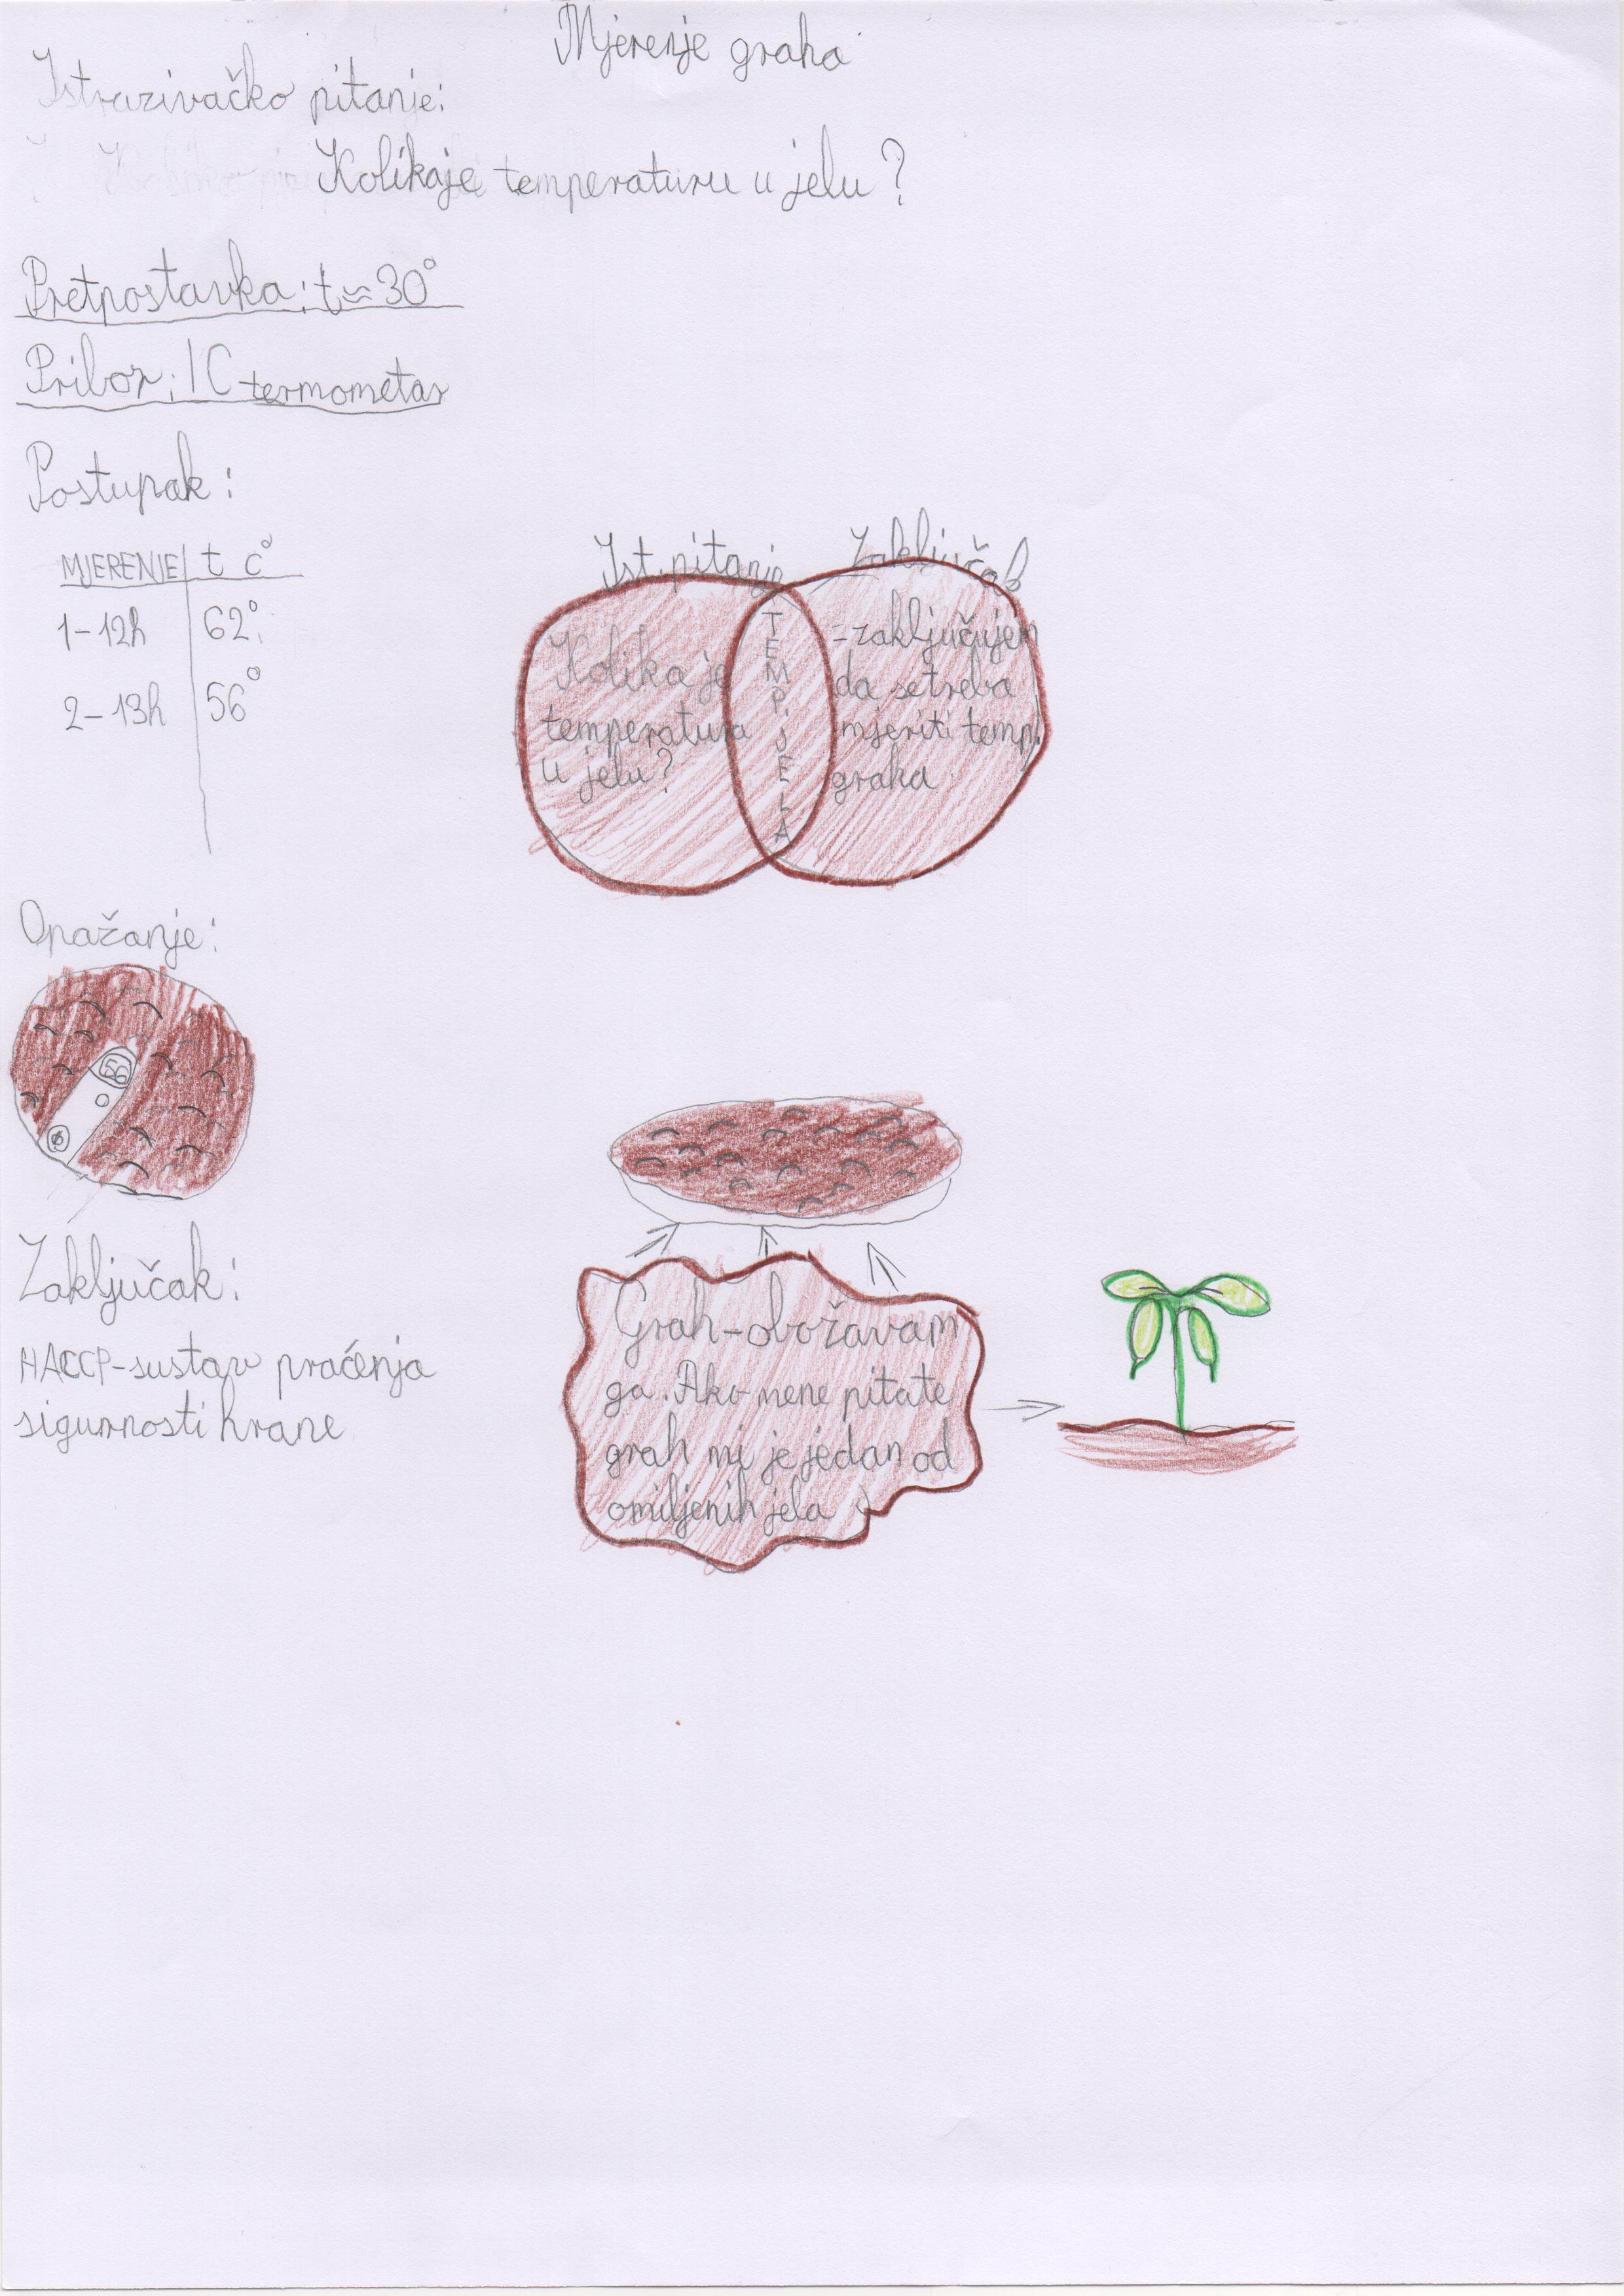 Mjerenje graha
Istrazivačko pitanje:
Kolikaje temperaturu u jelu?
Pretpostavka: t≈30°
Pribor: IC termometar
Postupak:
MJERENJE t C°
1-12h 62°
2-13h 56°
Ist. pitanje
Kolika je
temperatura
u jelu?
TEMP. JELA
Zaključak
-zaključujem
da setreba
mjeriti temp.
graha
Opažanje:
56
Zaključak:
HACCP-sustav praćenja
sigurnosti hrane
Grah-obožavam
ga. Ako mene pitate
grah mi je jedan od
omiljenih jela